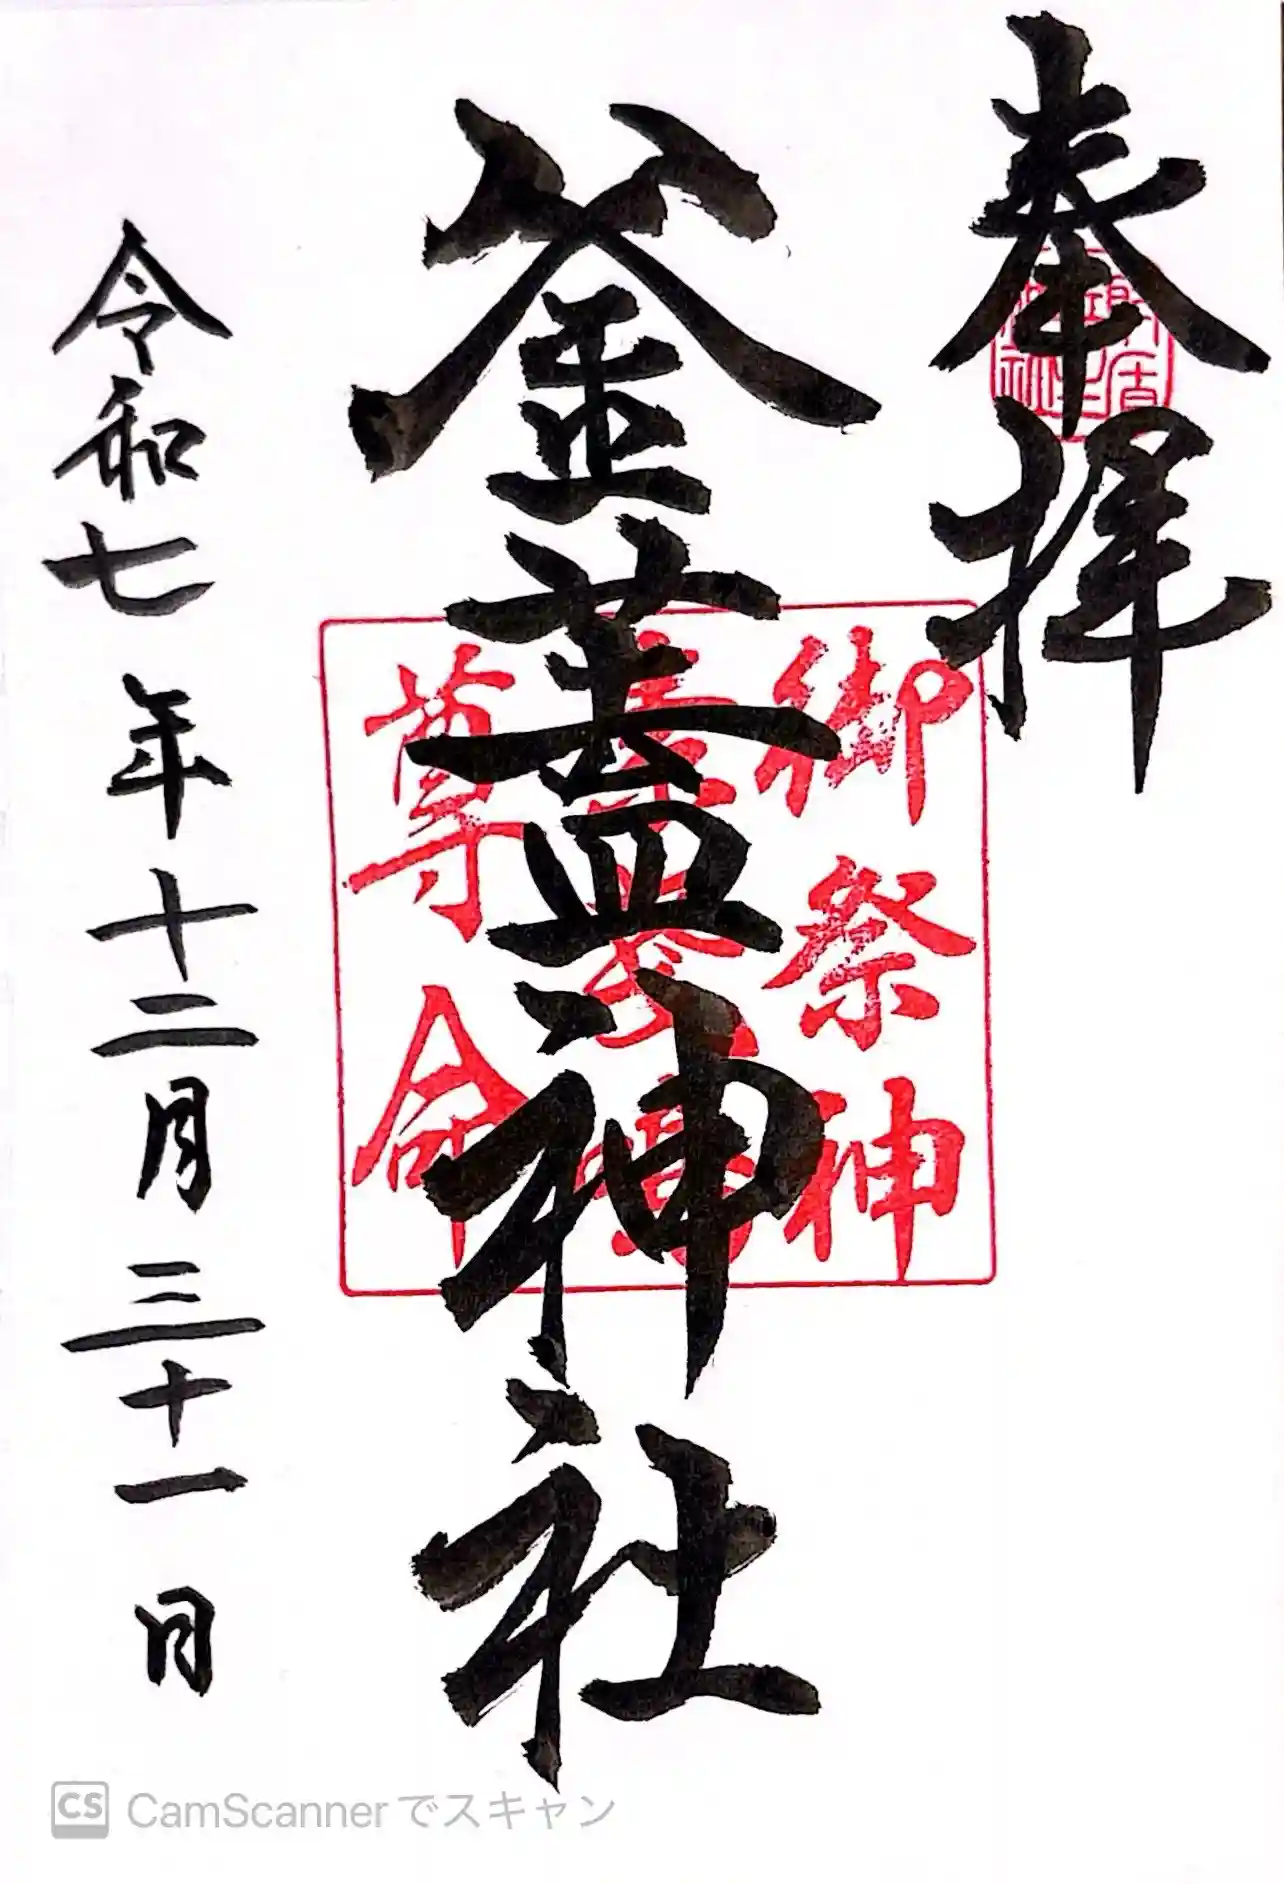 奉拝
御祭神
釜蓋神社
尊命
令和七年十二月三十一日
CS CamScannerでスキャン